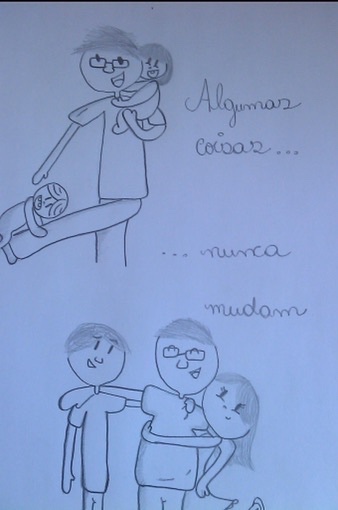 Algumas
coisas...
... nunca
mudam